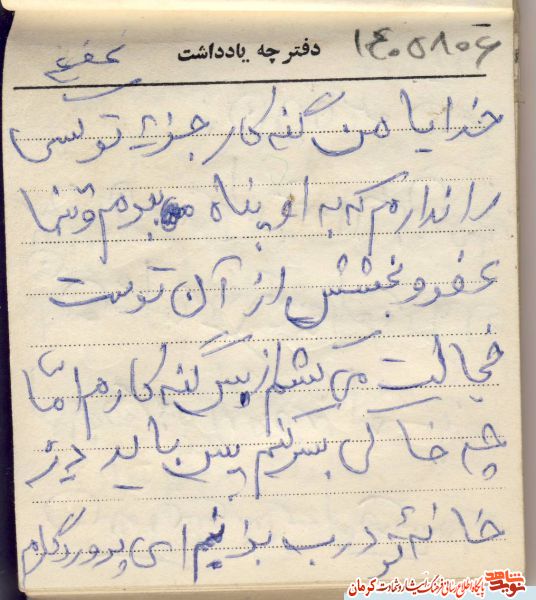 دفترچه یادداشت
خدایا من گنه کار جزء تو کسی
را ندارم که به او پناه ببرم و تنها
عفو و بخشش از آن توست
خجالت می کشم از بس گنه کارم امّا
چه خاکی بسر کنم پس باید درِ
خانهٔ تو درب بزنیم ای پروردگارم
نوید شاهد
پایگاه اطلاع رسانی فرهنگ ایثار و شهادت کرمان